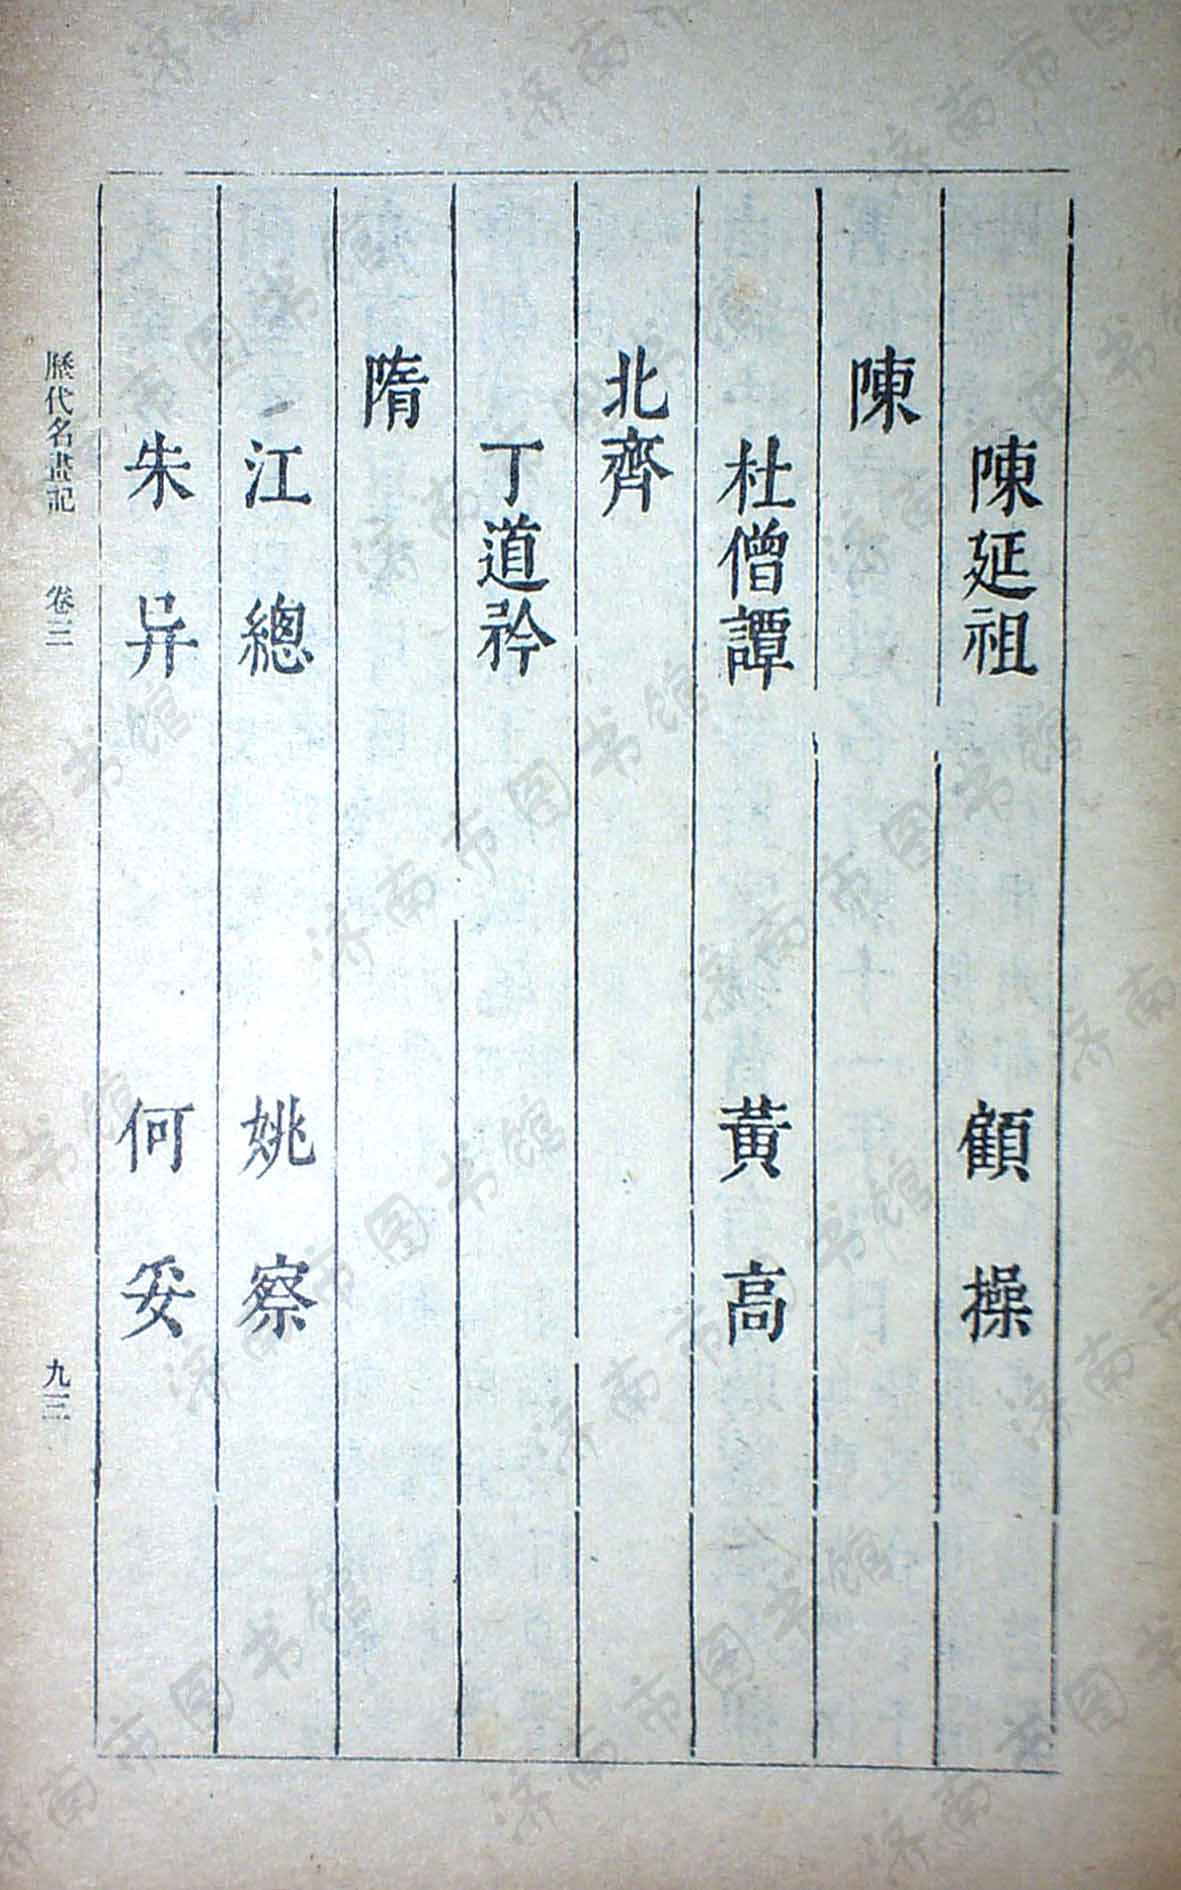 陳延祖 顧操
陳
杜僧譚 黃高
北齊
丁道矜
隋
江總 姚察
朱异 何妥
歷代名畫記 卷三 九三
济南市图书馆